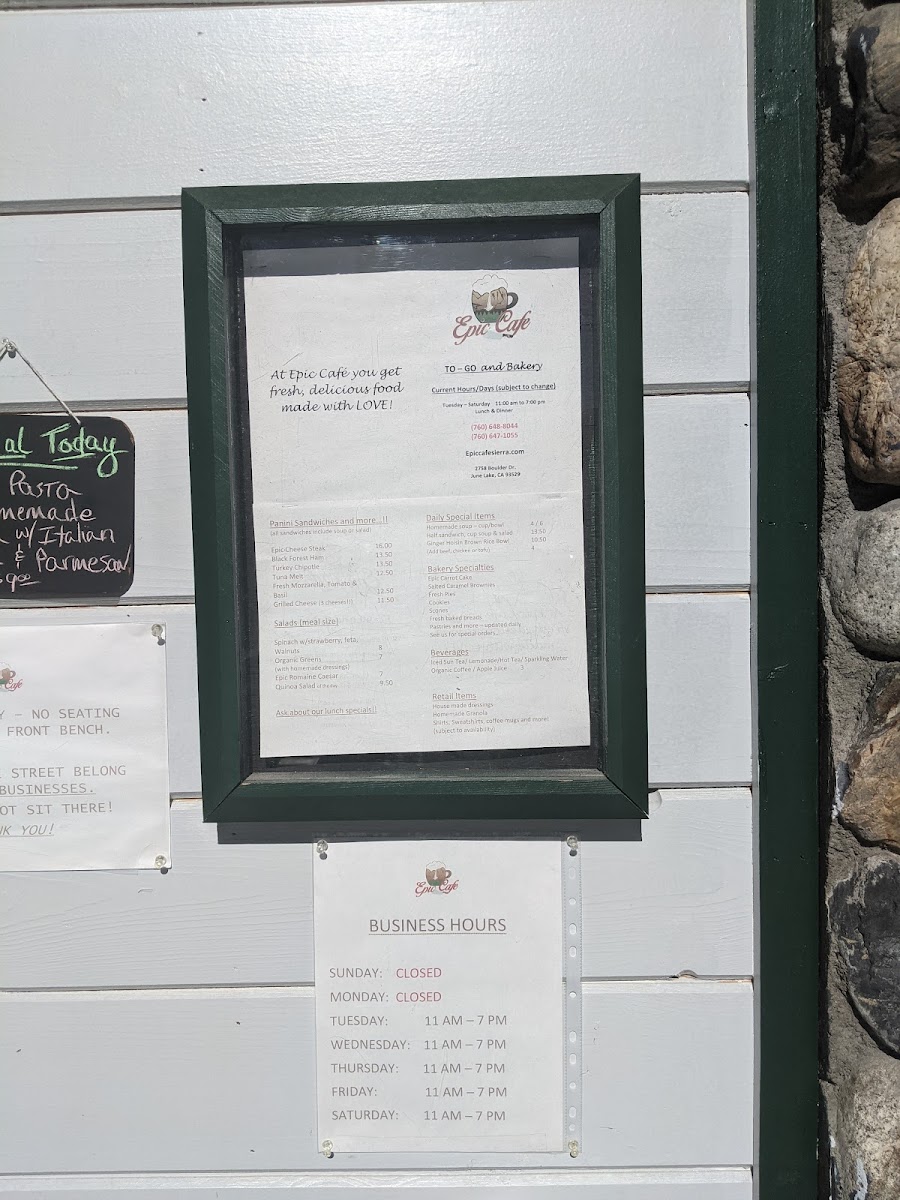 al Today
Pasta
memade
w/ Italian
& Parmesan
Epic Cafe
At Epic Café you get
fresh, delicious food
made with LOVE!
TO – GO and Bakery
Current Hours/Days (subject to change)
Tuesday – Saturday 11:00 am to 7:00 pm
Lunch & Dinner
(760) 648-8044
(760) 647-1055
Epiccafesierra.com
2758 Boulder Dr.
June Lake, CA 93529
Panini Sandwiches and more...!!
(all sandwiches include soup or salad)
Epic Cheese Steak 16.00
Black Forest Ham 13.50
Turkey Chipotle 13.50
Tuna Melt 12.50
Fresh Mozzarella, Tomato &
Basil 12.50
Grilled Cheese (3 cheeses!!) 11.50
Salads (meal size)
Spinach w/strawberry, feta,
Walnuts 8
Organic Greens 7
(with homemade dressings)
Epic Romaine Caesar 7
Quinoa Salad 9.50
Ask about our lunch specials!!
Daily Special Items
Homemade soup – cup/bowl 4 / 6
Half sandwich, cup soup & salad 13.50
Ginger Hoisin Brown Rice Bowl 10.50
(Add beef, chicken or tofu) 4
Bakery Specialties
Epic Carrot Cake
Salted Caramel Brownies
Fresh Pies
Cookies
Scones
Fresh baked breads
Pastries and more – updated daily
See us for special orders...
Beverages
Iced Sun Tea/ Lemonade/Hot Tea/ Sparkling Water
Organic Coffee / Apple Juice 3
Retail Items
House made dressings
Homemade Granola
Shirts, Sweatshirts, coffee mugs and more!
(subject to availability)
Cafe
Y – NO SEATING
FRONT BENCH.
STREET BELONG
BUSINESSES.
OT SIT THERE!
NK YOU!
Epic Cafe
BUSINESS HOURS
SUNDAY: CLOSED
MONDAY: CLOSED
TUESDAY: 11 AM – 7 PM
WEDNESDAY: 11 AM – 7 PM
THURSDAY: 11 AM – 7 PM
FRIDAY: 11 AM – 7 PM
SATURDAY: 11 AM – 7 PM